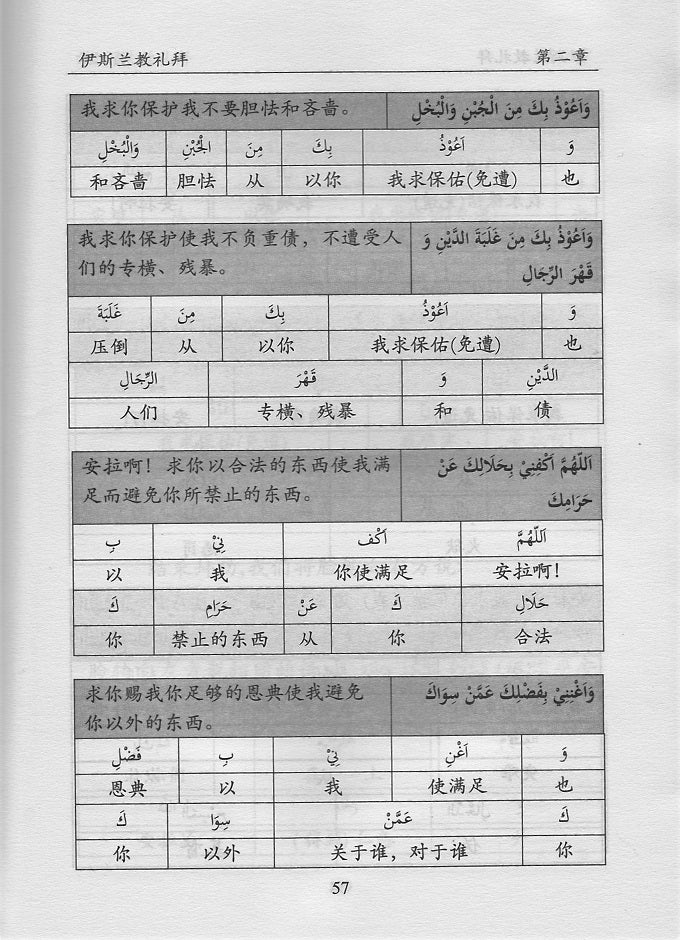 伊斯兰教礼拜 第二章
我求你保护我不要胆怯和吝啬。 وَاَعُوْذُ بِكَ مِنَ الْجُبْنِ وَالْبُخْلِ
وَالْبُخْلِ الْجُبْنِ مِنَ بِكَ اَعُوْذُ وَ
和吝啬 胆怯 从 以你 我求保佑(免遭) 也
我求你保护使我不负重债，不遭受人 وَاَعُوْذُ بِكَ مِنَ غَلَبَةَ الدَّيْنِ وَ
们的专横、残暴。 قَهْرَ الرِّجَالِ
غَلَبَةَ مِنَ بِكَ اَعُوْذُ وَ
压倒 从 以你 我求保佑(免遭) 也
الرِّجَالِ قَهْرَ وَ الدَّيْنِ
人们 专横、残暴 和 债
安拉啊！求你以合法的东西使我满 اَللّٰهُمَّ اَكْفِنِيْ بِحَلَالِكَ عَنْ
足而避免你所禁止的东西。 حَرَامِكَ
بِ نِيْ اَكْف اَللّٰهُمَّ
以 我 你使满足 安拉啊！
كَ حَرَامِ عَنْ كَ حَلَالِ
你 禁止的东西 从 你 合法
求你赐我你足够的恩典使我避免 وَاَغْنِنِيْ بِفَضْلِكَ عَمَّنْ سِوَاكَ
你以外的东西。
فَضْلِ بِ نِيْ اَغْنِ وَ
恩典 以 我 使满足 也
كَ سِوَا عَمَّنْ كَ
你 以外 关于谁，对于谁 你
57